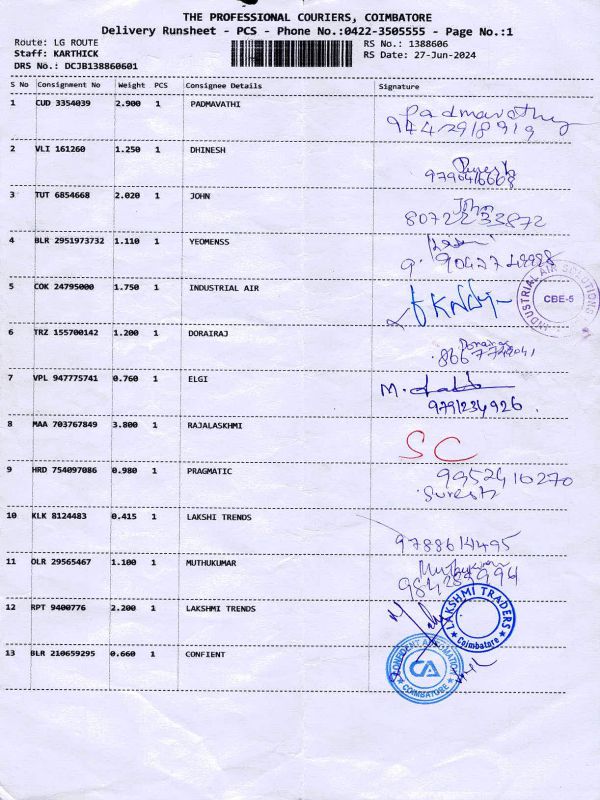 THE PROFESSIONAL COURIERS, COIMBATORE
Delivery Runsheet - PCS - Phone No.:0422-3505555 - Page No.:1
Route: LG ROUTE
Staff: KARTHICK
DRS No.: DCJB138860601
RS No.: 1388606
RS Date: 27-Jun-2024
S No Consignment No Weight PCS Consignee Details Signature
1 CUD 3354039 2.900 1 PADMAVATHI
Padmavathy
9442918919
2 VLI 161260 1.250 1 DHINESH
3 TUT 6854668 2.020 1 JOHN
John
8072233872
4 BLR 2951973732 1.110 1 YEOMENSS
5 COK 24795000 1.750 1 INDUSTRIAL AIR
INDUSTRIAL AIR SOLUTIONS
CBE-5
6 TRZ 155700142 1.200 1 DORAIRAJ
7 VPL 947775741 0.760 1 ELGI
M.
9791234926.
8 MAA 703767849 3.800 1 RAJALASKHMI
SC
9 HRD 754097086 0.980 1 PRAGMATIC
9952416270
Suresh
10 KLK 8124483 0.415 1 LAKSHI TRENDS
9788614495
11 OLR 29565467 1.100 1 MUTHUKUMAR
12 RPT 9400776 2.200 1 LAKSHMI TRENDS
LAKSHMI TRADERS
Coimbatore
13 BLR 210659295 0.660 1 CONFIENT
CONFIDENT AUTOMATION
CA
COIMBATORE